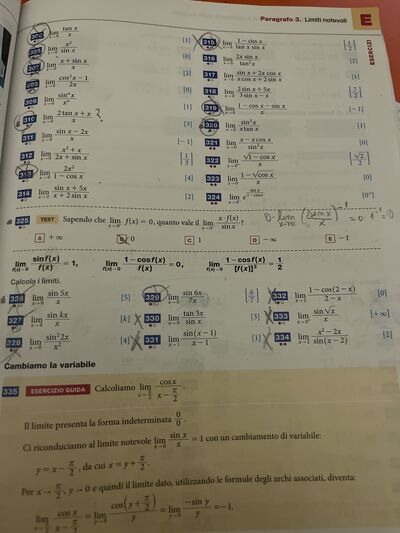 Paragrafo 3. Limiti notevoli E
ESERCIZI
lim x→0 tan x / x [1]
305 lim x→0 x² / sin x [0]
307 lim x→0 (x + sin x) / x
308 lim x→0 (cos² x − 1) / 2x [0]
309 lim x→0
310 lim x→0 (2 tan x + x) / x ? [3]
311 lim x→0 (sin x − 2x) / x [−1]
312 lim x→0 (x² + x) / (2x + sin x) [1/3]
313 lim x→0 2x² / (1 − cos x) [4]
314 lim x→0 (sin x + 5x) / (x + 2 sin x) [2]
315 lim x→0 (1 − cos x) / (tan x sin x) [1/2]
316 lim x→0 2x sin x / tan² x [2]
317 lim x→0 (sin x + 2x cos x) / (x cos x + 2 sin x) [1]
318 lim x→0 (2 sin x + 5x) / (3 sin x − x) [7/2]
319 lim x→0 (1 − cos x − sin x) / x [−1]
320 lim x→0 sin² x / (x tan x) [1]
321 lim x→0 (x − x cos x) / sin x [0]
322 lim √(1 − cos x) / x [√2/2]
323 lim (1 − √cos x) / x [0]
324 lim
325 TEST Sapendo che lim x→0 f(x) = 0, quanto vale il lim x→0 x · f(x) / sin x?
A +∞ B 0 C 1 D −∞ E −1
lim f(x)→0 sin f(x) / f(x) = 1, lim f(x)→0 (1 − cos f(x)) / f(x) = 0, lim f(x)→0 (1 − cos f(x)) / [f(x)]² = 1/2
Calcola i limiti.
326 lim x→0 sin 5x / x [5]
327 lim x→0 sin kx / x [k]
328 lim x→0 sin² 2x / x² [4]
329 lim x→0 sin 6x / 7x [6/7]
330 lim x→0 tan 3x / sin x [3]
331 lim x→1 sin(x − 1) / (x − 1) [1]
332 lim x→2 (1 − cos(2 − x)) / (2 − x) [0]
333 lim sin √x / x [+∞]
334 lim x→2 (x² − 2x) / sin(x − 2) [2]
Cambiamo la variabile
335 ESERCIZIO GUIDA Calcoliamo lim x→π/2 cos x / (x − π/2).
Il limite presenta la forma indeterminata 0/0.
Ci riconduciamo al limite notevole lim x→0 sin x / x = 1 con un cambiamento di variabile:
y = x − π/2, da cui x = y + π/2.
Per x → π/2, y → 0 e quindi il limite dato, utilizzando le formule degli archi associati, diventa:
lim x→π/2 cos x / (x − π/2) = lim y→0 cos(y + π/2) / y = lim y→0 −sin y / y = −1.